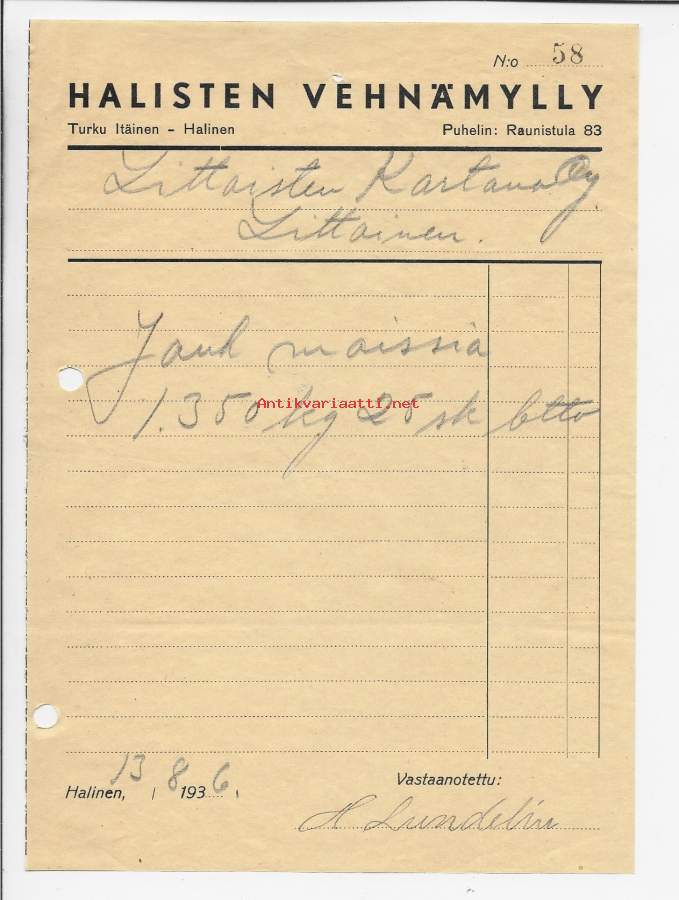 N:o 58
HALISTEN VEHNÄMYLLY
Turku Itäinen - Halinen Puhelin: Raunistula 83
Littoisten Kartano Oy.
Littoinen.
Jauh maissia
1.350 kg 25 sk btto
Antikvariaatti.net
Halinen, 13 / 8 1936.
Vastaanotettu:
H Lundelin